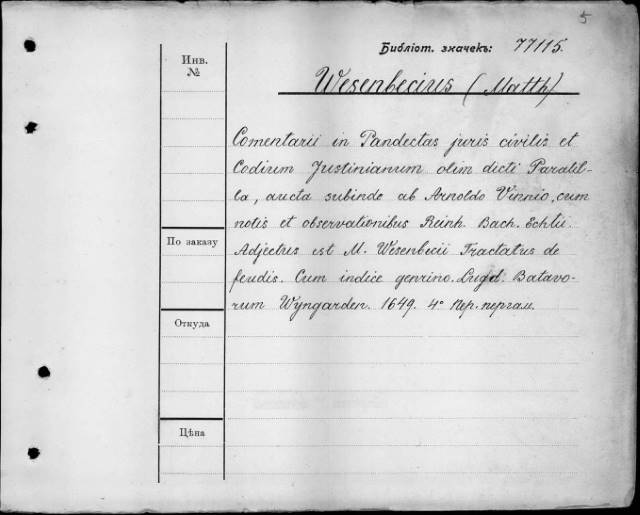 5
Библіот. значекъ: 77115.
Инв.
№
Wesenbecius (Matth)
Comentarii in Pandectas juris civilis et
Codicum Justinianum olim dicti Paratit-
la, aucta subinde ab Arnoldo Vinnio, cum
notis et observationibus Reinh. Bach. Echtii.
По заказу
Adjectus est M. Wesenbecii Tractatus de
feudis. Cum indice genrino. Lugd: Batavo-
rum Wyngarden. 1649. 4° Пер. пергам.
Откуда
Цѣна